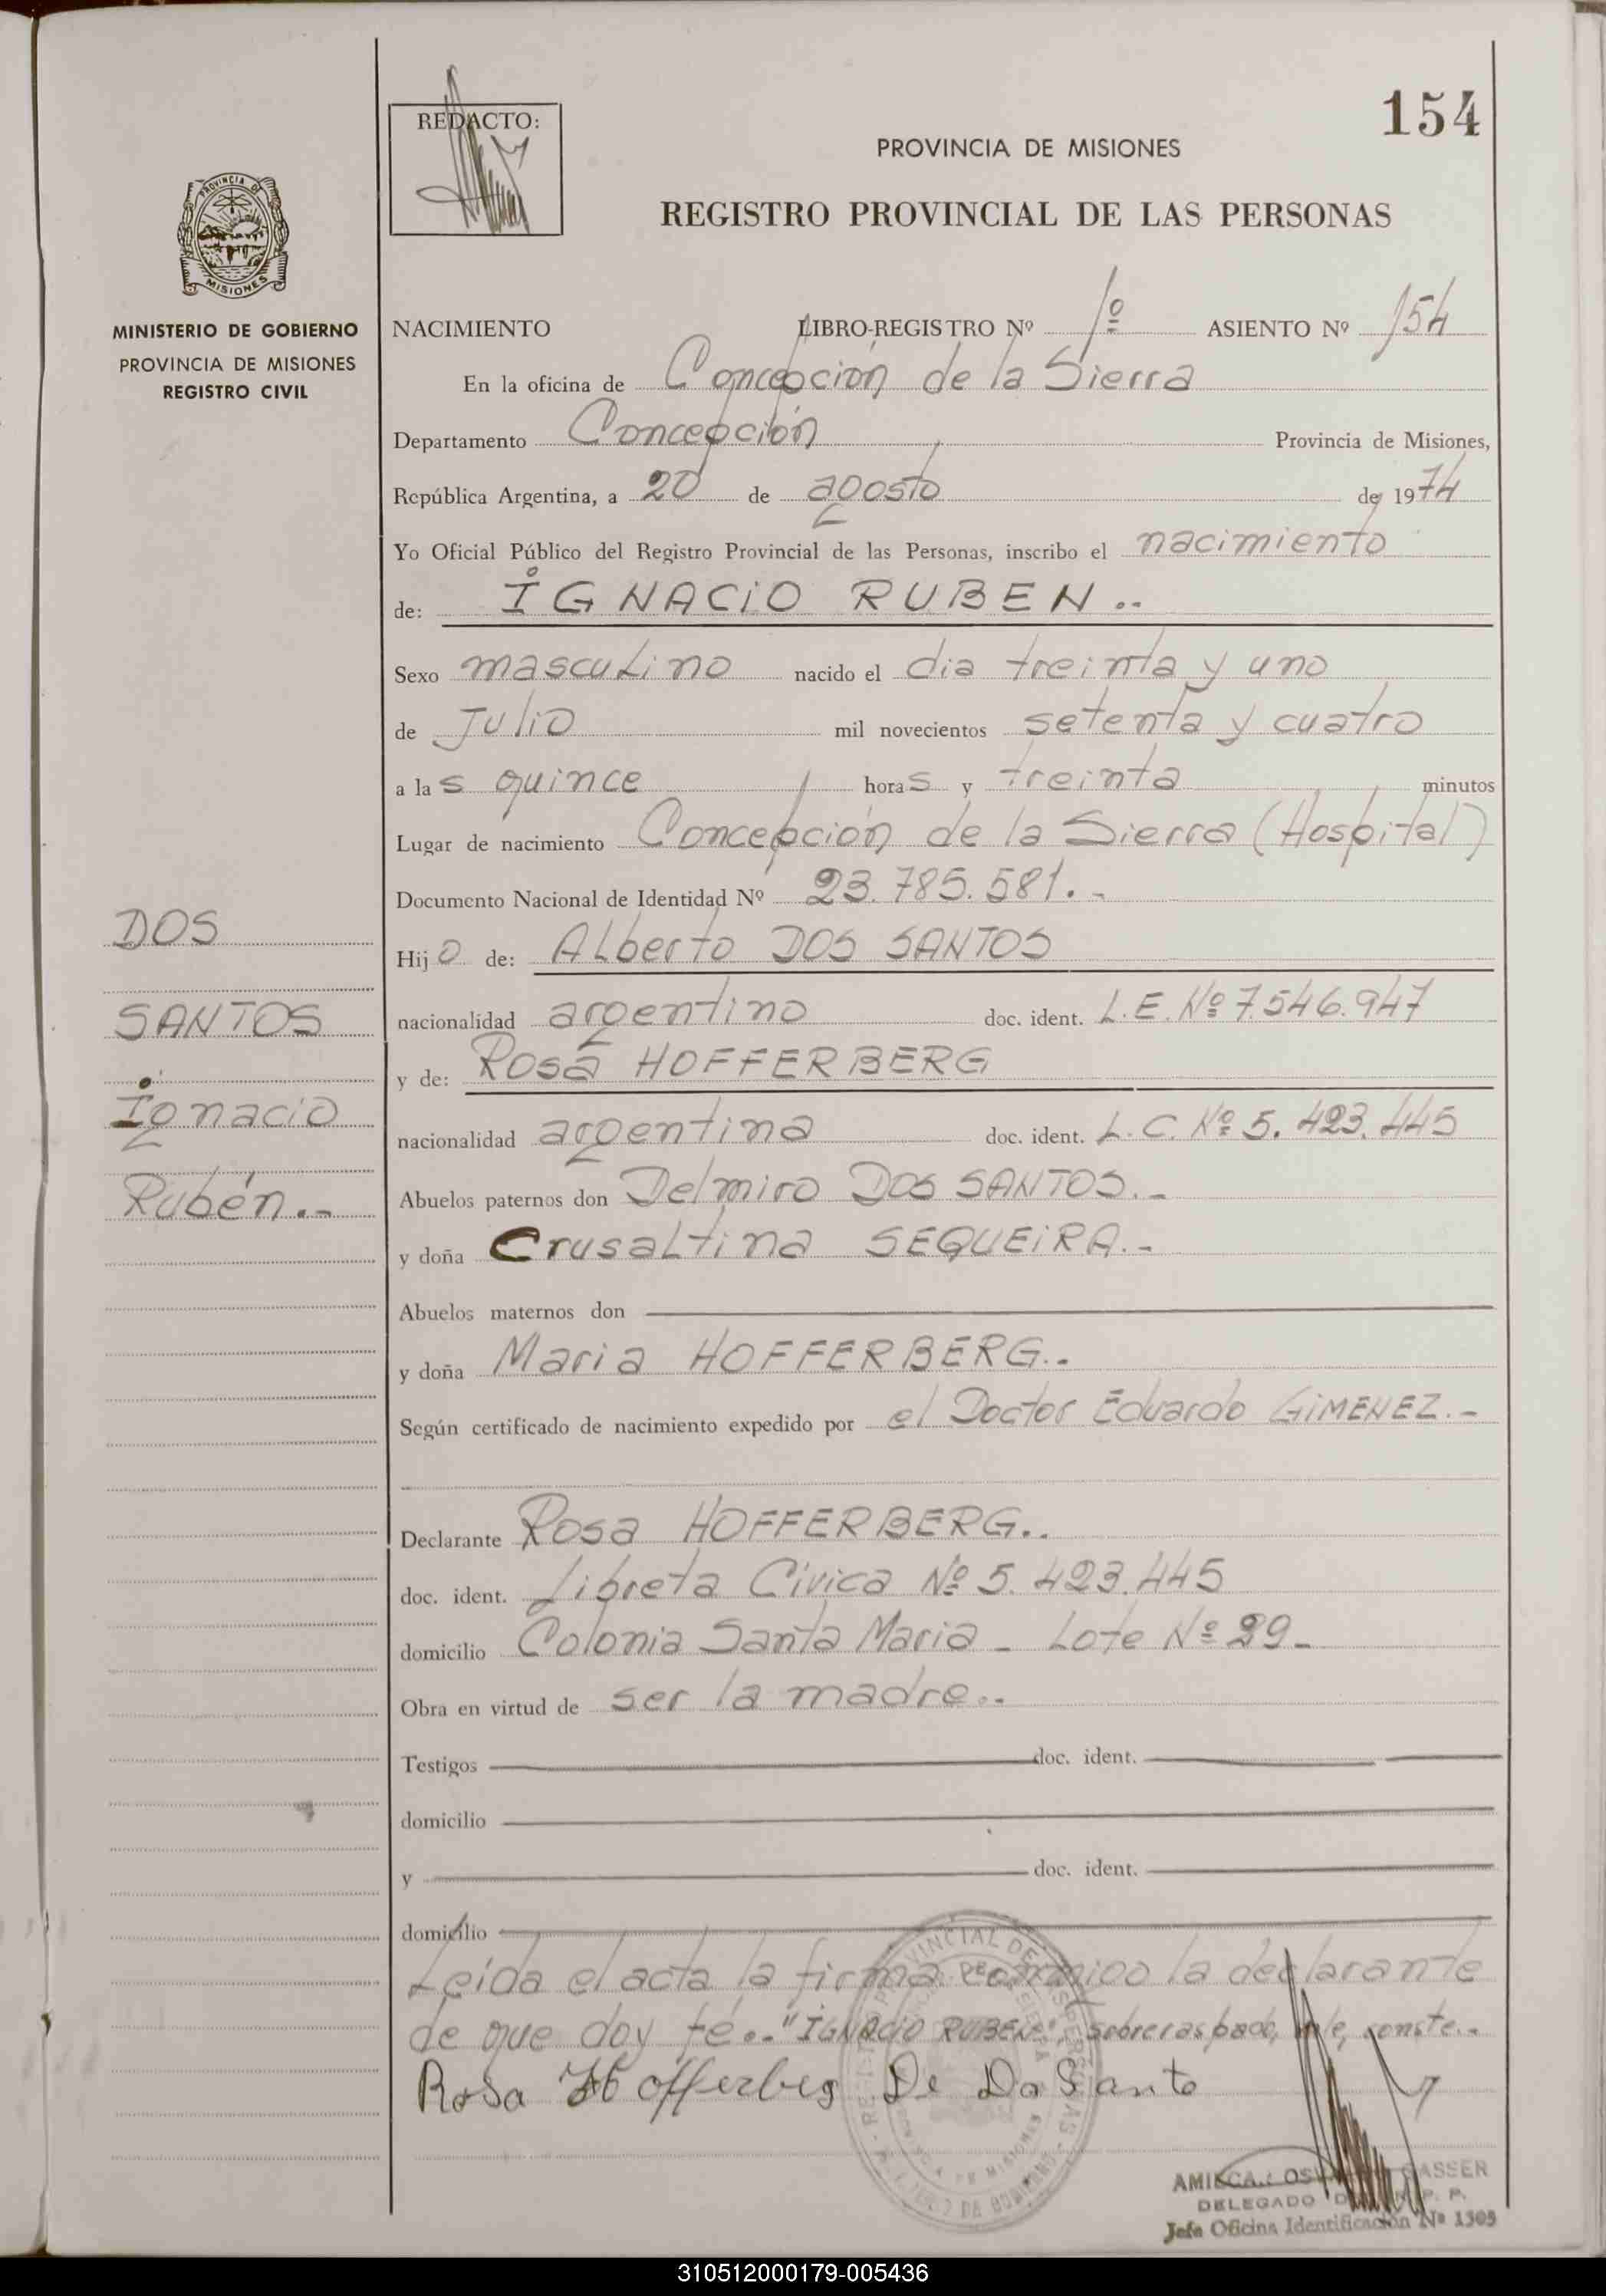 154
REDACTO:
PROVINCIA DE MISIONES
REGISTRO PROVINCIAL DE LAS PERSONAS
PROVINCIA DE
MISIONES
MINISTERIO DE GOBIERNO
PROVINCIA DE MISIONES
REGISTRO CIVIL
NACIMIENTO LIBRO-REGISTRO Nº 1º ASIENTO Nº 154
En la oficina de Concepción de la Sierra
Departamento Concepción Provincia de Misiones,
República Argentina, a 20 de agosto de 1974
Yo Oficial Público del Registro Provincial de las Personas, inscribo el nacimiento
de: IGNACIO RUBEN..
Sexo masculino nacido el dia treinta y uno
de Julio mil novecientos setenta y cuatro
a las quince horas y treinta minutos
Lugar de nacimiento Concepción de la Sierra (Hospital)
Documento Nacional de Identidad Nº 23.785.581.-
Hijo de: Alberto DOS SANTOS
nacionalidad argentino doc. ident. L.E. Nº 7.546.947
y de: Rosa HOFFERBERG
nacionalidad argentina doc. ident. L.C. Nº 5.423.445
Abuelos paternos don Delmiro DOS SANTOS.-
y doña Crusaltina SEQUEIRA.-
Abuelos maternos don
y doña Maria HOFFERBERG..
Según certificado de nacimiento expedido por el Doctor Eduardo GIMENEZ.-
Declarante Rosa HOFFERBERG..
doc. ident. Libreta Cívica Nº 5.423.445
domicilio Colonia Santa Maria - Lote Nº 29-
Obra en virtud de ser la madre..
Testigos doc. ident.
domicilio
y doc. ident.
domicilio
Leida el acta la firma conmigo la declarante
de que doy fé.. "IGNACIO RUBEN", sobreraspado, vale, conste..
Rosa Hofferbeg De Do Santo
DOS
SANTOS
Ignacio
Rubén.-
DELEGADO R. P. P.
Jefe Oficina Identificación Nº 1505
310512000179-005436